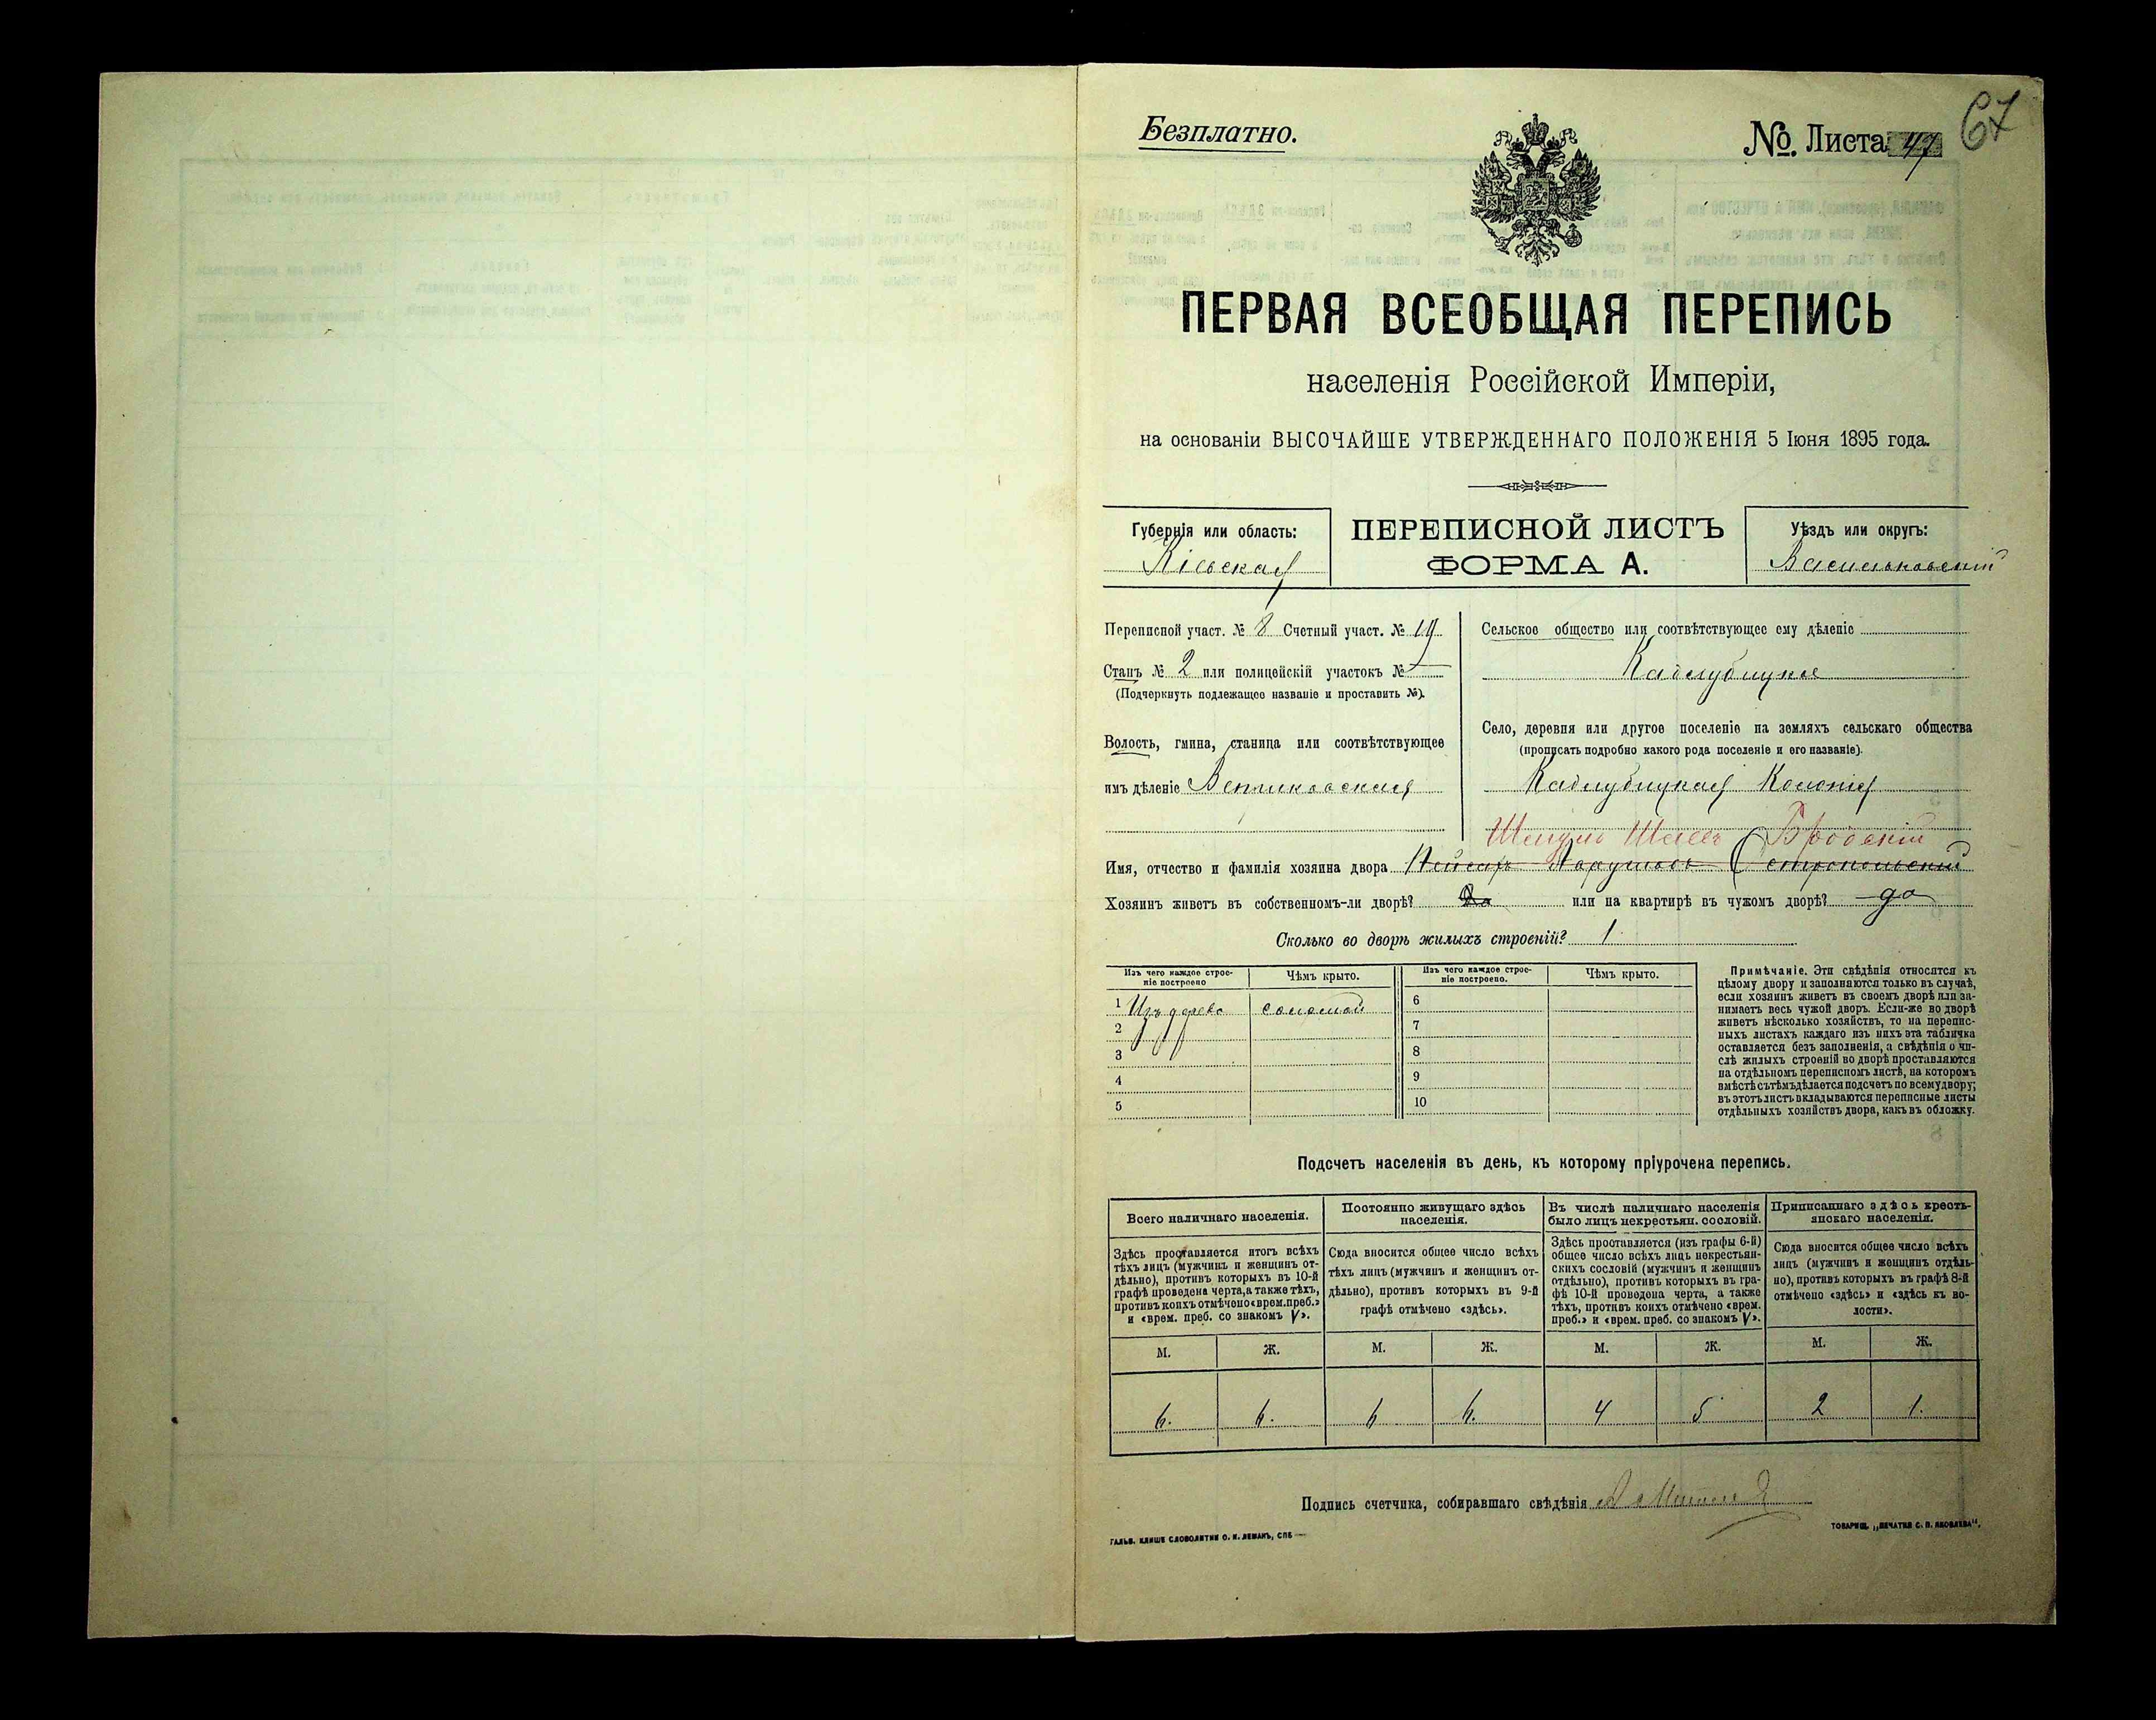 67
Безплатно.
№. Листа 47
ПЕРВАЯ ВСЕОБЩАЯ ПЕРЕПИСЬ
населенія Россійской Имперіи,
на основаніи ВЫСОЧАЙШЕ УТВЕРЖДЕННАГО ПОЛОЖЕНІЯ 5 Іюня 1895 года.
Губернія или область:
Кіевская
ПЕРЕПИСНОЙ ЛИСТЪ
ФОРМА А.
Уѣздъ или округъ:
Васильковскій
Переписной участ. № 8 Счетный участ. № 19
Станъ № 2 или полицейскій участокъ №
(Подчеркнуть подлежащее названіе и проставить №).
Волость, гмина, станица или соотвѣтствующее
имъ дѣленіе
Сельское общество или соотвѣтствующее ему дѣленіе
Кадлубицкое
Село, деревня или другое поселеніе на земляхъ сельскаго общества
(прописать подробно какого рода поселеніе и его названіе).
Кадлубицкая Колонія
Бродскій
Имя, отчество и фамилія хозяина двора
Хозяинъ живетъ въ собственномъ-ли дворѣ? да или на квартирѣ въ чужомъ дворѣ? да
Сколько во дворѣ жилыхъ строеній? 1
Изъ чего каждое строе-
ніе построено
Чѣмъ крыто.
Изъ чего каждое строе-
ніе построено.
Чѣмъ крыто.
1 Изъ дерева соломой
2
3
4
5
6
7
8
9
10
Примѣчаніе. Эти свѣдѣнія относятся къ
цѣлому двору и заполняются только въ случаѣ,
если хозяинъ живетъ въ своемъ дворѣ или за-
нимаетъ весь чужой дворъ. Если-же во дворѣ
живетъ нѣсколько хозяйствъ, то на перепис-
ныхъ листахъ каждаго изъ нихъ эта табличка
оставляется безъ заполненія, а свѣдѣнія о чи-
слѣ жилыхъ строеній во дворѣ проставляются
на отдѣльномъ переписномъ листѣ, на которомъ
вмѣстѣ съ тѣмъ дѣлается подсчетъ по всему двору;
въ этотъ листъ вкладываются переписные листы
отдѣльныхъ хозяйствъ двора, какъ въ обложку.
Подсчетъ населенія въ день, къ которому пріурочена перепись.
Всего наличнаго населенія.
Постоянно живущаго здѣсь
населенія.
Въ числѣ наличнаго населенія
было лицъ некрестьян. сословій.
Приписаннаго здѣсь кресть-
янскаго населенія.
Здѣсь проставляется итогъ всѣхъ
тѣхъ лицъ (мужчинъ и женщинъ от-
дѣльно), противъ которыхъ въ 10-й
графѣ проведена черта, а также тѣхъ,
противъ коихъ отмѣчено «врем. преб.»
и «врем. преб. со знакомъ V».
Сюда вносится общее число всѣхъ
тѣхъ лицъ (мужчинъ и женщинъ от-
дѣльно), противъ которыхъ въ 9-й
графѣ отмѣчено «здѣсь».
Здѣсь проставляется (изъ графы 6-й)
общее число всѣхъ лицъ некрестьян-
скихъ сословій (мужчинъ и женщинъ
отдѣльно), противъ которыхъ въ гра-
фѣ 10-й проведена черта, а также
тѣхъ, противъ коихъ отмѣчено «врем.
преб.» и «врем. преб. со знакомъ V».
Сюда вносится общее число всѣхъ
лицъ (мужчинъ и женщинъ отдѣль-
но), противъ которыхъ въ графѣ 8-й
отмѣчено «здѣсь» и «здѣсь къ во-
лости».
М. Ж. М. Ж. М. Ж. М. Ж.
6. 6. 6 6. 4 5 2 1.
Подпись счетчика, собиравшаго свѣдѣнія
ГАЛЬВ. КЛИШЕ СЛОВОЛИТНИ О. И. ЛЕМАНЪ, СПБ
ТОВАРИЩ. „ПЕЧАТНЯ С. П. ЯКОВЛЕВА".